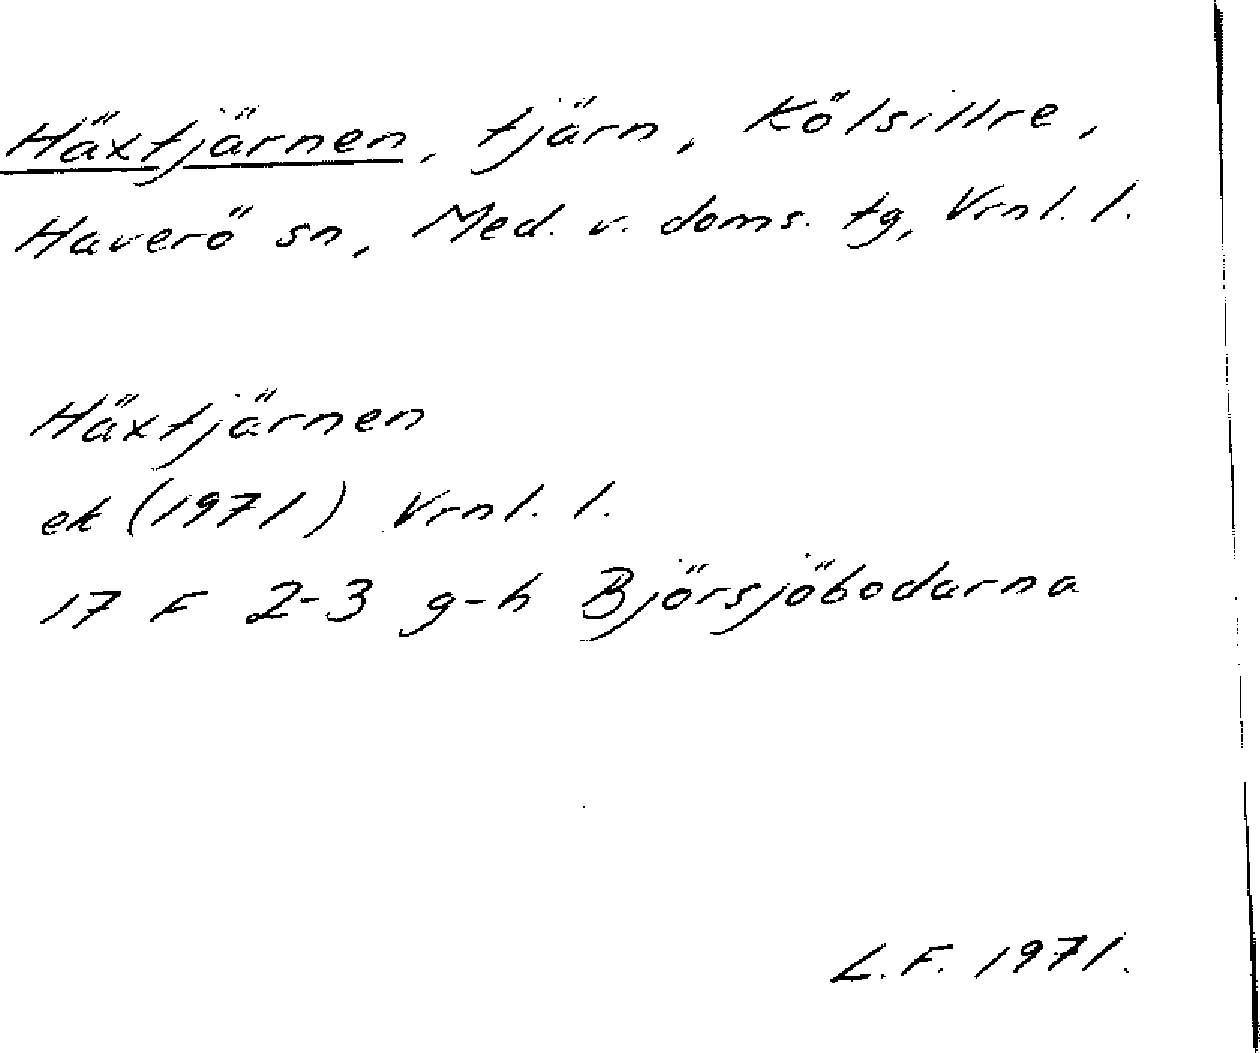 Häxtjärnen, tjärn, Kölsillre,
Haverö sn, Med. v. doms. tg, Vrnl. l.
Häxtjärnen
ek (1971) Vrnl. l.
17 F 2-3 g-h Björsjöbodarna
L.F. 1971.